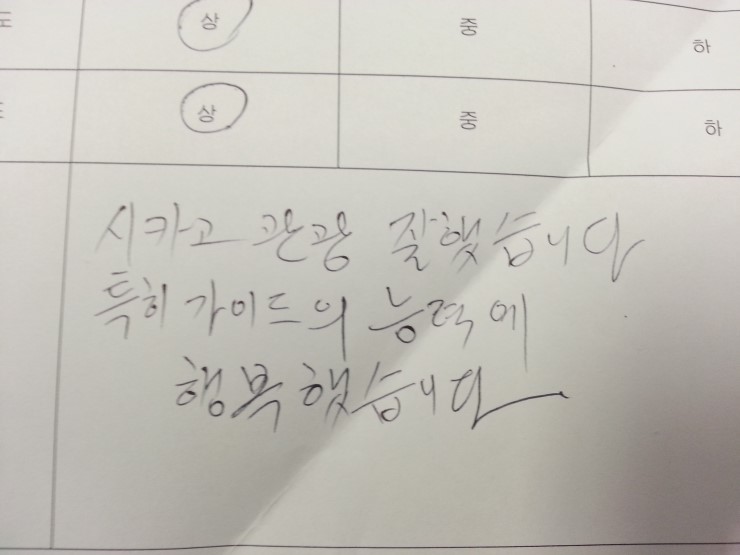 상 중 하
상 중 하
시카고 관광 잘했습니다
특히 가이드의 능력에
행복했습니다